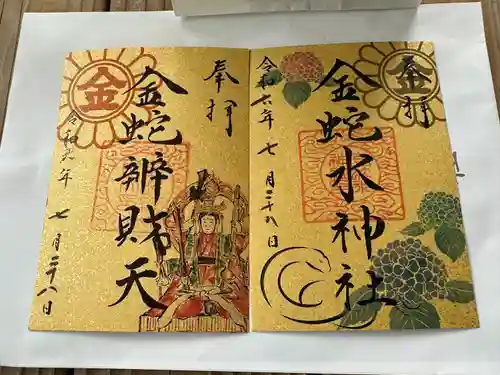 金
奉拝
金蛇水神社
令和六年 七月二十八日
金
奉拝
金蛇辨財天
令和六年 七月二十八日